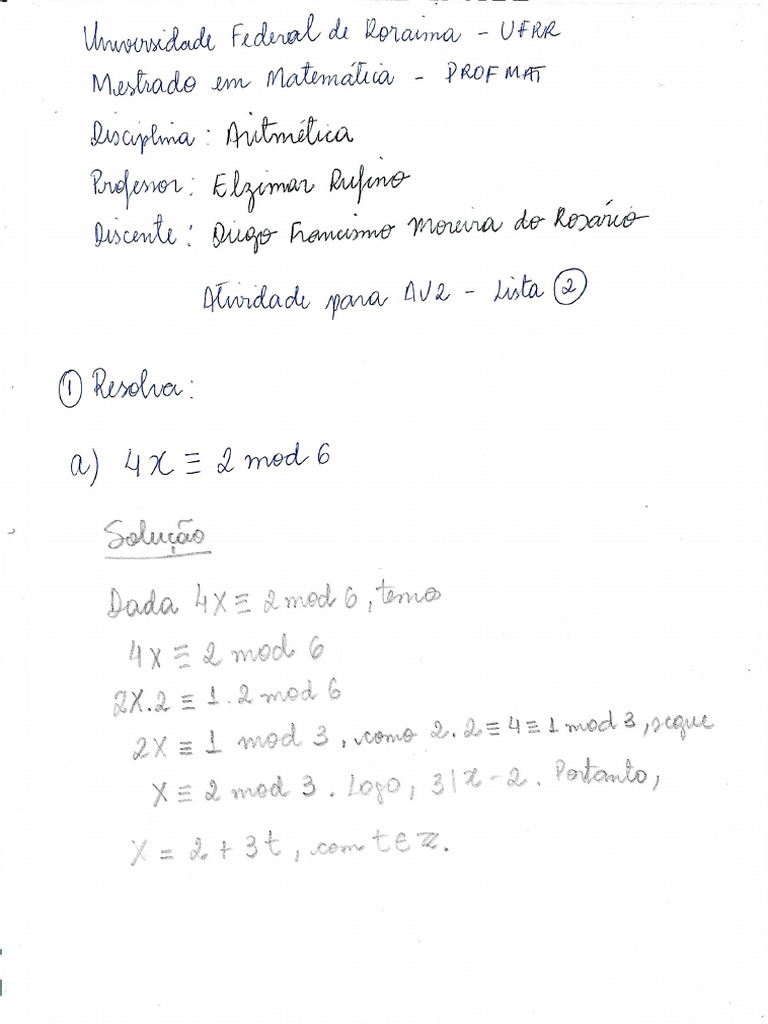 Universidade Federal de Roraima - UFRR
Mestrado em Matemática - PROFMAT
Disciplina: Aritmética
Professor: Elzimar Rufino
Discente: Diego Francismo Moreira do Rosário
Atividade para AV2 - Lista ②
① Resolva:
a) 4x ≡ 2 mod 6
Solução
Dada 4x ≡ 2 mod 6, temos
4x ≡ 2 mod 6
2x.2 ≡ 1.2 mod 6
2x ≡ 1 mod 3, como 2.2 ≡ 4 ≡ 1 mod 3, segue
x ≡ 2 mod 3. Logo, 3|x-2. Portanto,
x = 2 + 3t, com t ∈ ℤ.